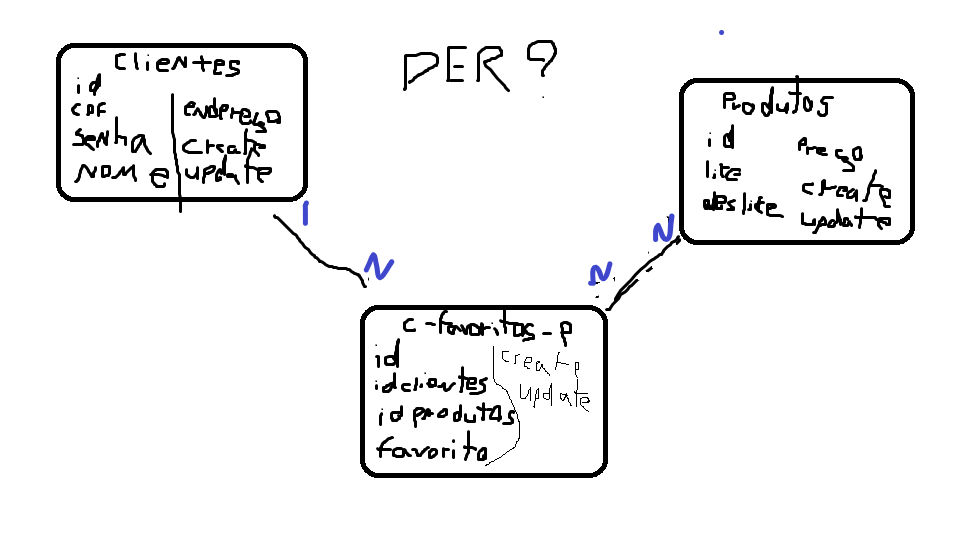 DER?
Clientes
id
CPF
senha
NOME
endereço
create
update
Produtos
id
lite
deslite
Preço
create
update
1
N
N
N
c-favoritos-p
id
idclientes
idprodutos
favorito
create
update